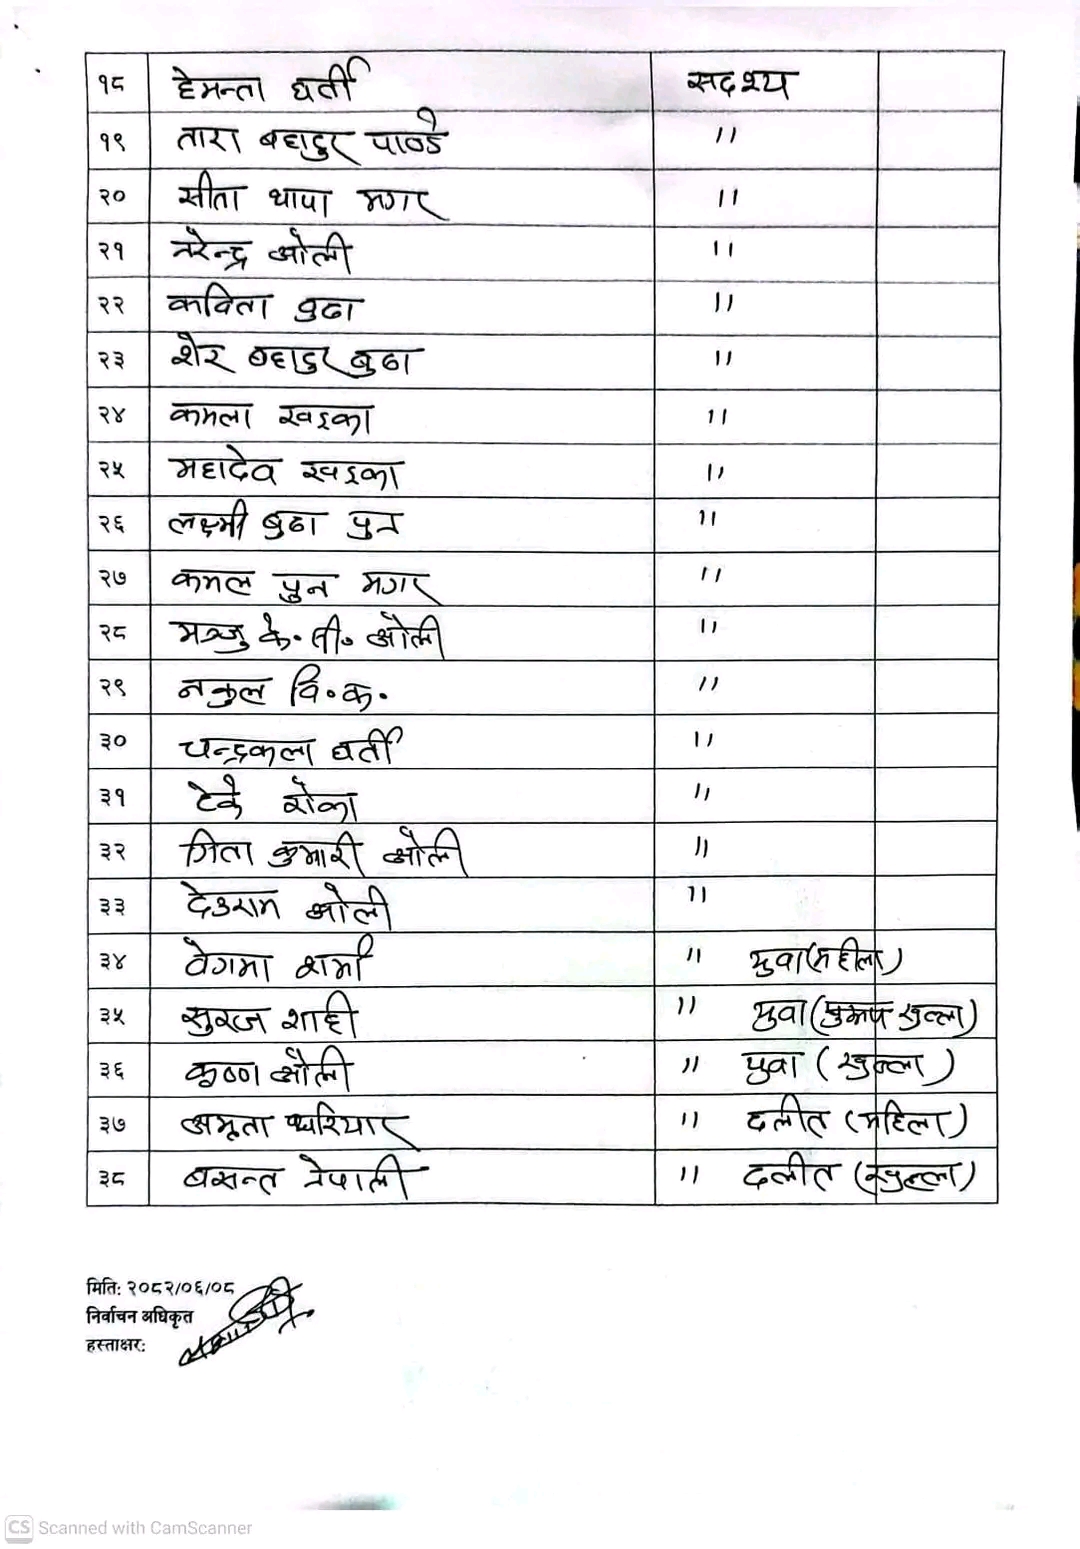 १८ हेमन्ता घर्ती सदश्य
१९ तारा बहादुर पाण्डे "
२० सीता थापा मगर "
२१ नरेन्द्र ओली "
२२ कविता वुढा "
२३ शेर बहादुर बुढा "
२४ कमला खड्का "
२५ महादेव खड्का "
२६ लक्ष्मी बुढा पुन "
२७ कमल पुन मगर "
२८ मञ्जु के॰ सी॰ ओली "
२९ नकुल वि॰क॰ "
३० चन्द्रकला घर्ती "
३१ टेके रोका "
३२ गिता कुमारी ओली "
३३ देउराम ओली "
३४ वेगमा शर्मा " युवा(महीला)
३५ सुरज शाही " युवा( खुल्ला)
३६ कृष्ण ओली " युवा (खुल्ला)
३७ अमृता परियार " दलीत (महिला)
३८ बसन्त नेपाली " दलीत (खुल्ला)
मिति: २०८२/०६/०८
निर्वाचन अधिकृत
हस्ताक्षर:
CS Scanned with CamScanner